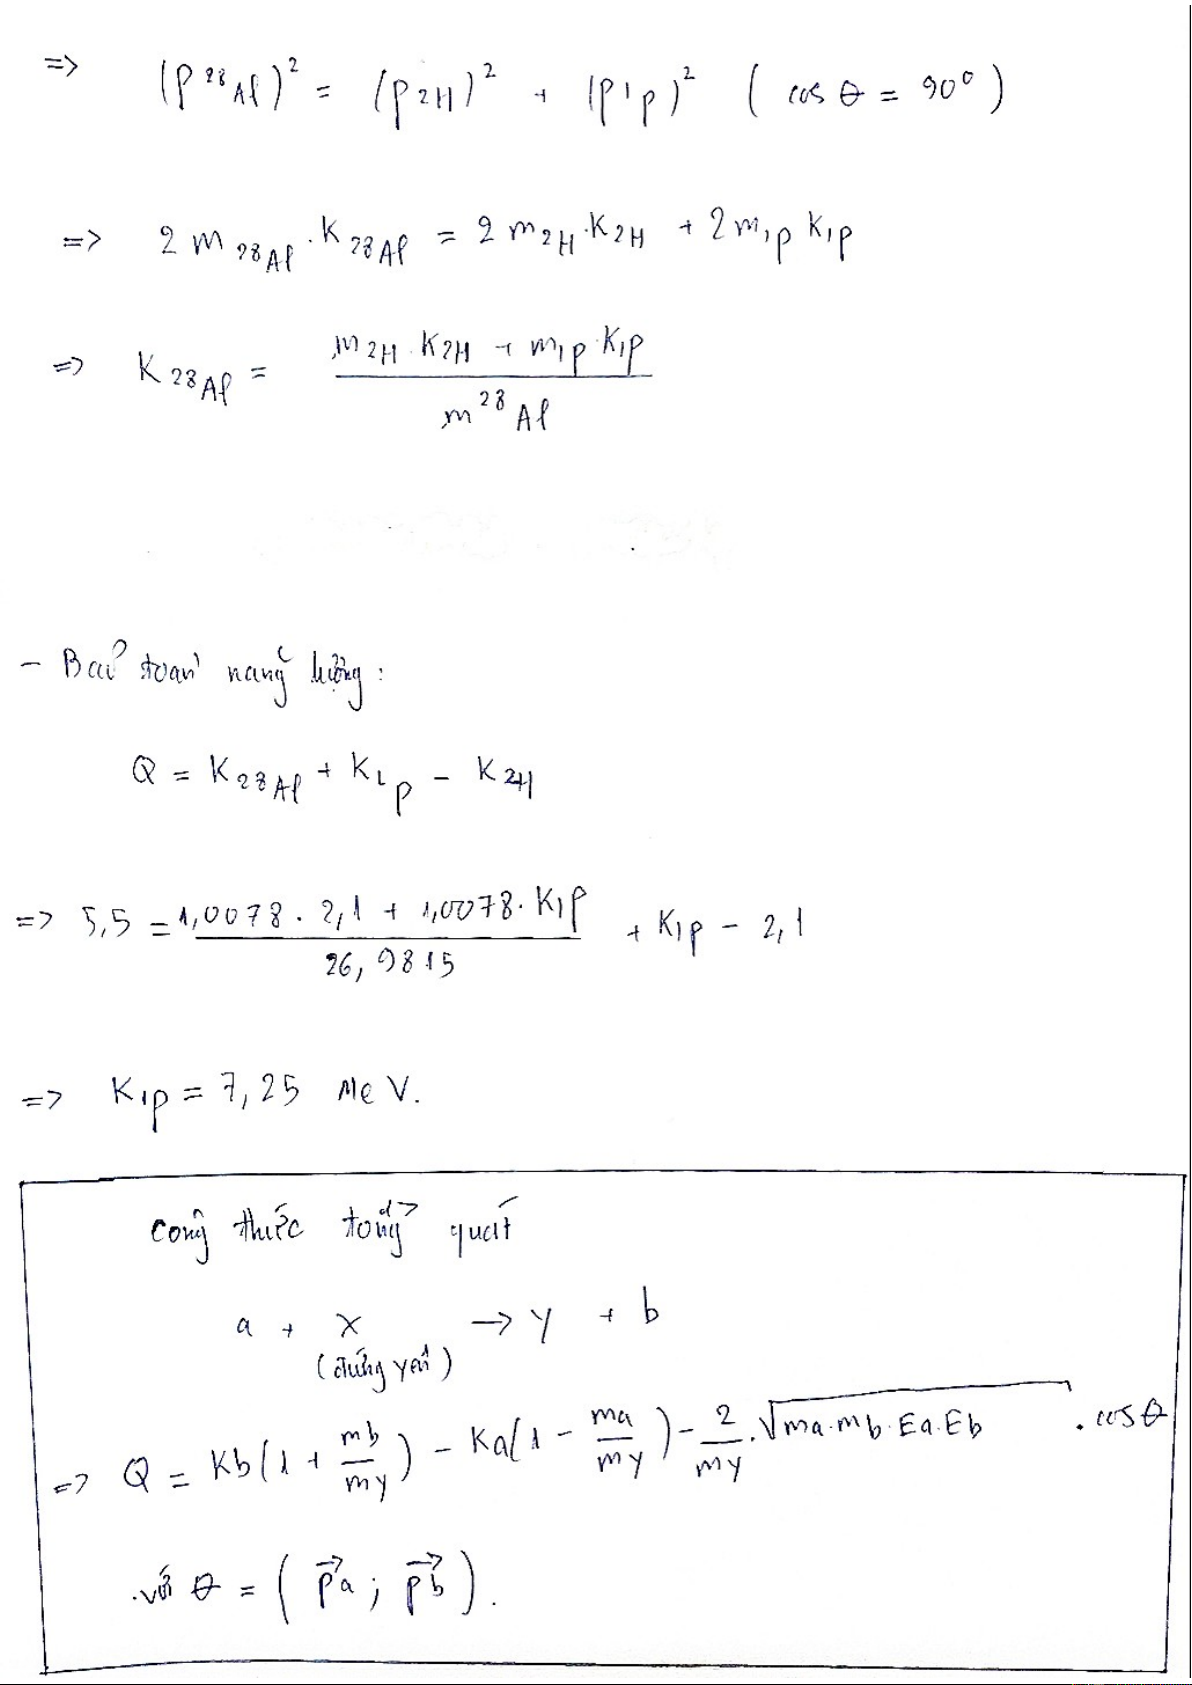 => (p ²⁸Al)² = (p2H)² + (p¹p)² ( cos θ = 90° )
=> 2 m 28Al . K 28Al = 2 m2H . K2H + 2 m1p K1p
=> K 28Al = \frac{m2H . K2H + m1p . K1p}{m ²⁸Al}
- Bảo toàn năng lượng :
Q = K28Al + K1p - K2H
=> 5,5 = \frac{1,0078 . 2,1 + 1,0078 . K1p}{26,9815} + K1p - 2,1
=> K1p = 7,25 MeV.
công thức tổng quát
a + x -> y + b
(đứng yên)
=> Q = Kb(1 + \frac{mb}{my}) - Ka(1 - \frac{ma}{my}) - \frac{2}{my} . √(ma.mb.Ea.Eb) . cos θ
với θ = ( \vec{pa} ; \vec{pb} ).